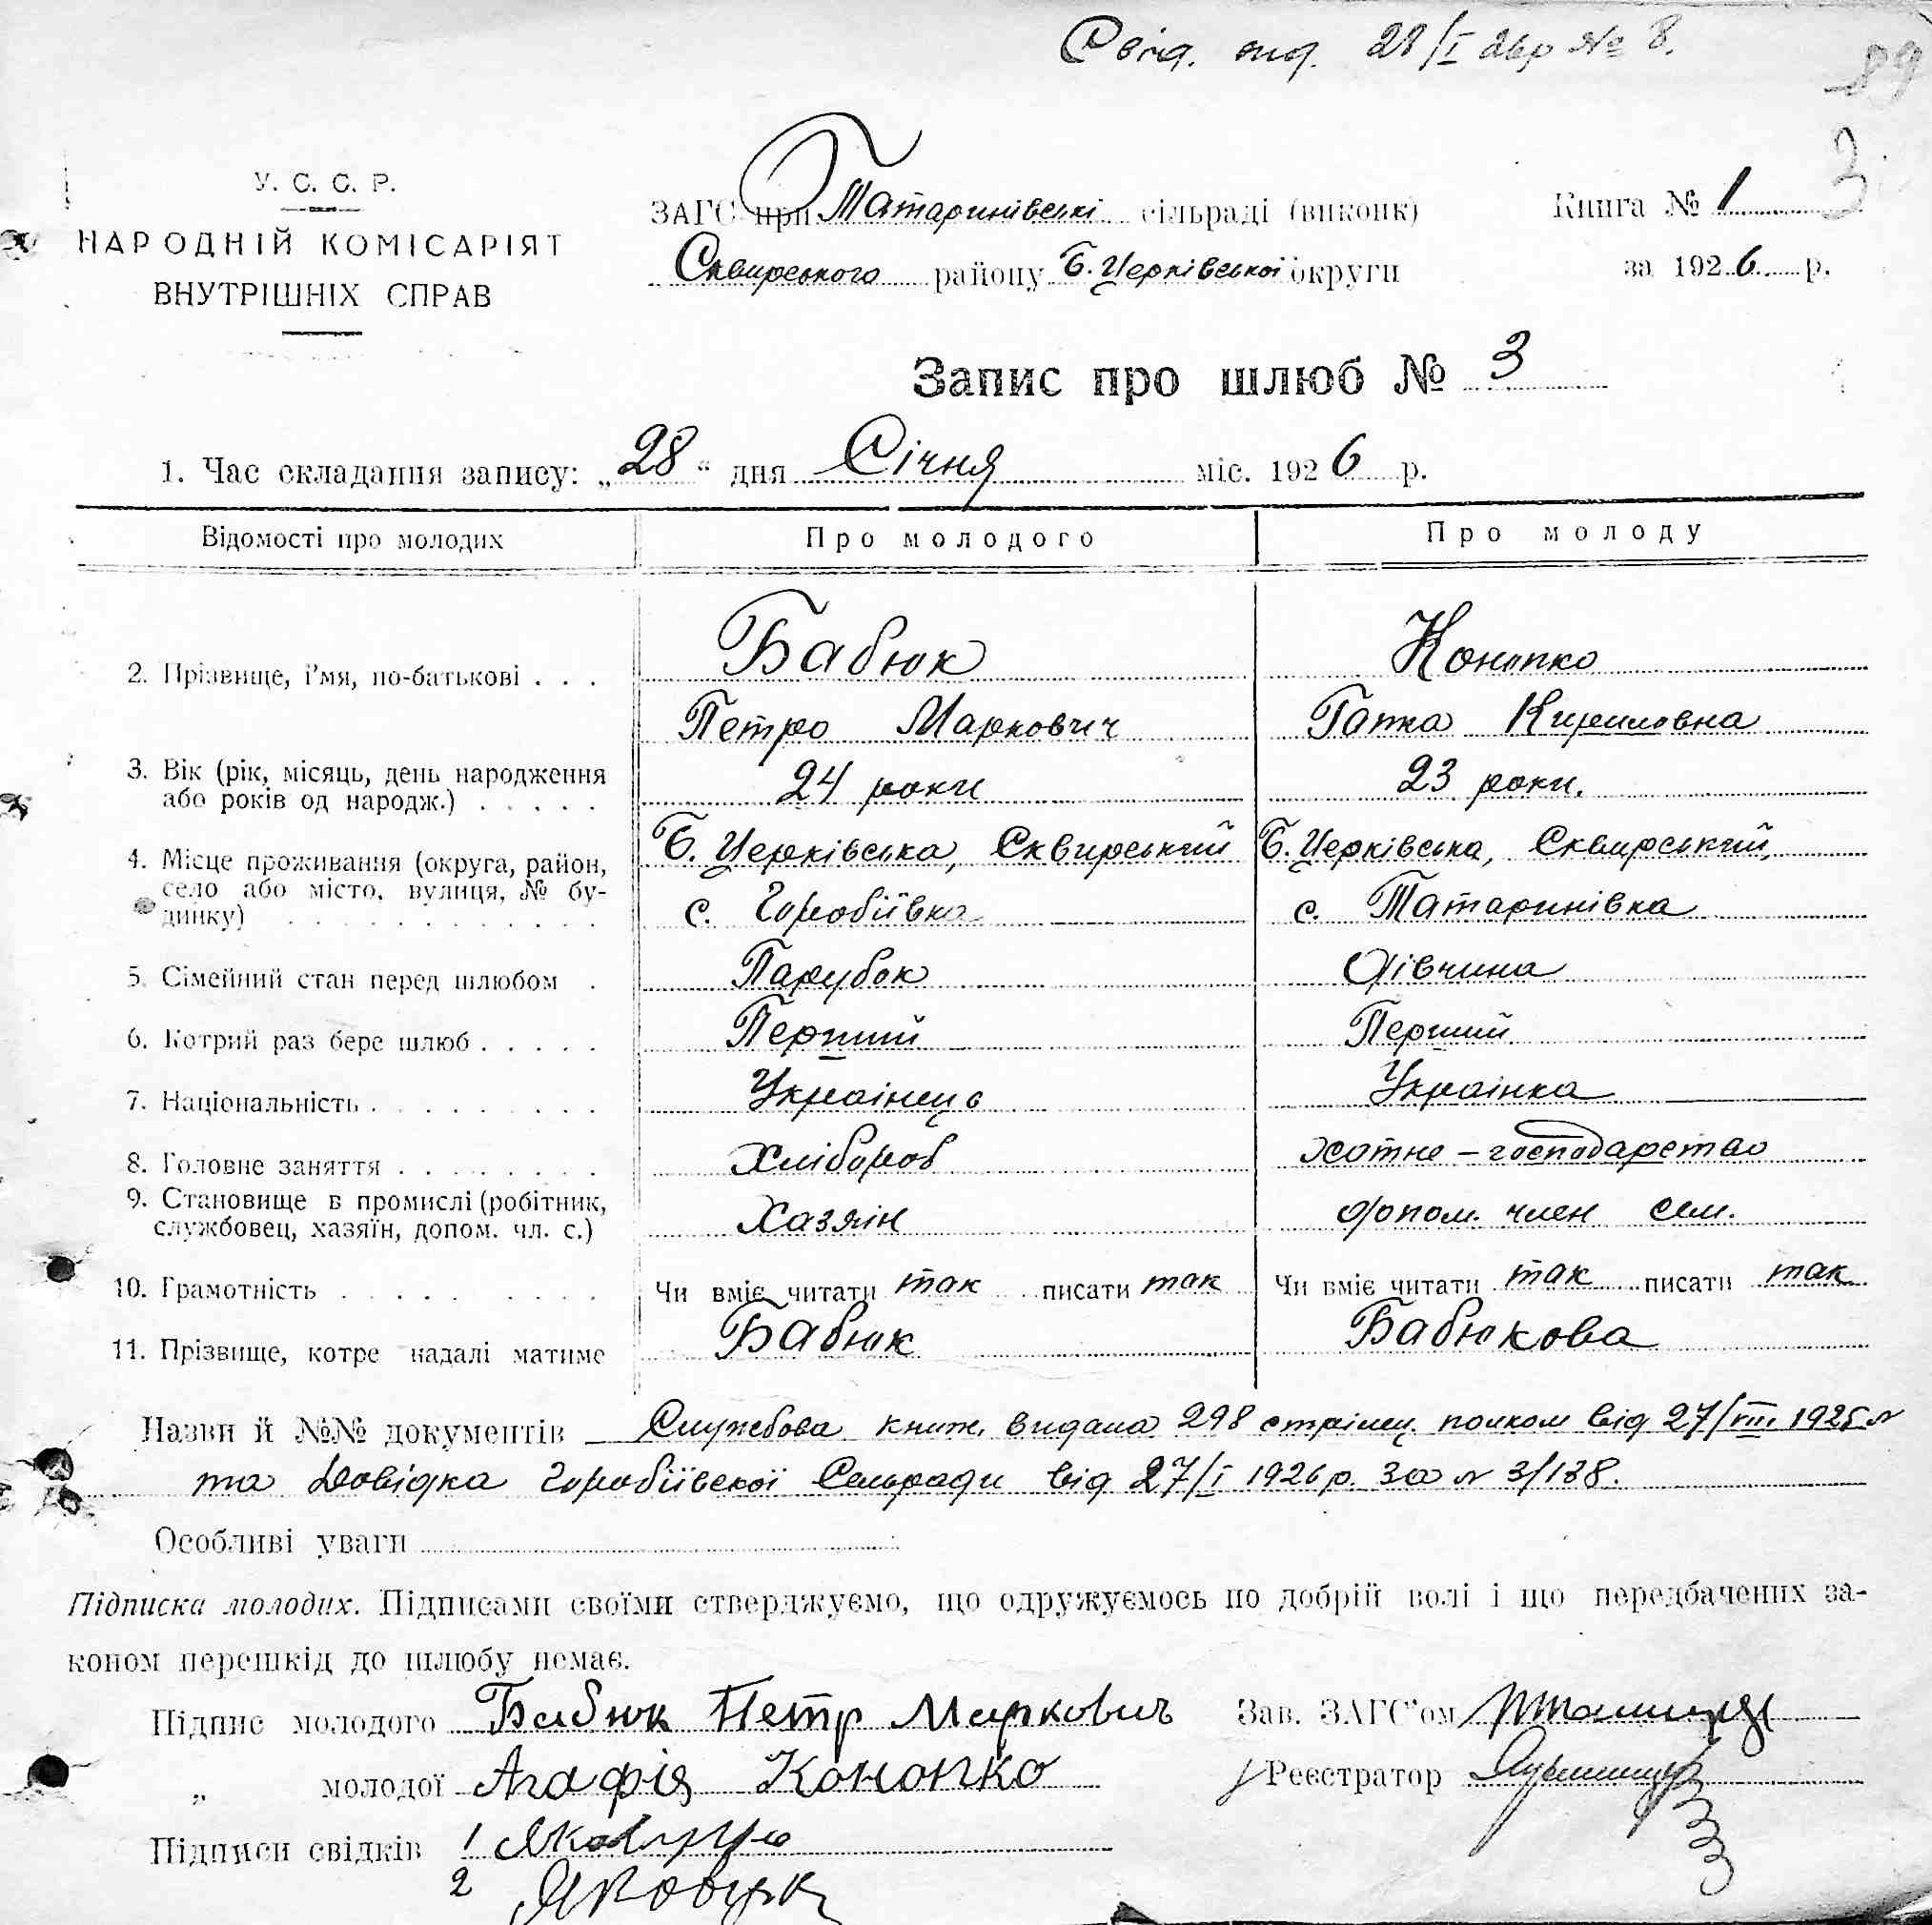 Свід. вид. 28/I 26р № 8.
89
3
У. С. С. Р.
НАРОДНІЙ КОМІСАРІЯТ
ВНУТРІШНІХ СПРАВ
ЗАГС при Татаринівські сільраді (виконк)
Книга № 1
Сквирського району Б. Церківської округи
за 1926 р.
Запис про шлюб № 3
1. Час складання запису: „28“ дня Січня міс. 1926 р.
Відомості про молодих Про молодого Про молоду
2. Прізвище, і'мя, по-батькові . . . Бабюк Конопко
Петро Маркович Гапка Кириловна
3. Вік (рік, місяць, день народження або років од народж.) . . . . . 24 роки 23 роки.
4. Місце проживання (округа, район, Б. Церківська, Сквирський Б. Церківська, Сквирський,
село або місто, вулиця, № бу-
динку) . . . . . . . . . . . . с. Горобіївка с. Татаринівка
5. Сімейний стан перед шлюбом . Парубок Дівчина
6. Котрий раз бере шлюб . . . . . Перший Перший
7. Національність . . . . . . . . . Українець Українка
8. Головне заняття . . . . . . . . Хлібороб хатне – господарство
9. Становище в промислі (робітник,
службовец, хазяїн, допом. чл. с.) Хазяін допом. член сем.
10. Грамотність . . . . . . . . . Чи вміє читати так писати так Чи вміє читати так писати так
11. Прізвище, котре надалі матиме Бабюк Бабюкова
Назви й №№ документів Службова книж. видана 298 стрілец. полком від 27/VIII 1925 №
та Довідка Горобіївскої Сельради від 27/I 1926 р. за № 3/138.
Особливі уваги
Підписка молодих. Підписами своїми стверджуємо, що одружуємось по добрій волі і що передбачених за-
коном перешкід до шлюбу немає.
Підпис молодого Бабюк Петр Маркович Зав. ЗАГС'ом
„ молодої Агафія Конопко Реєстратор
Підписи свідків 1
2